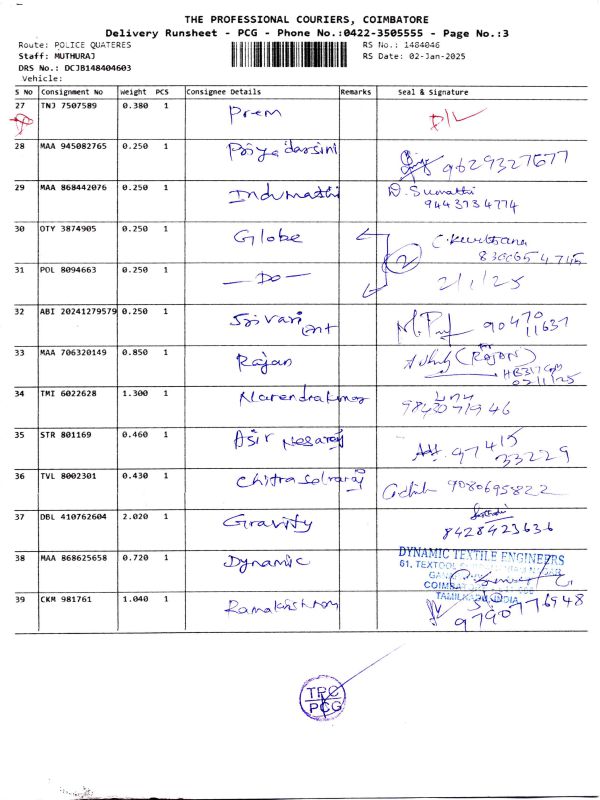 THE PROFESSIONAL COURIERS, COIMBATORE
Delivery Runsheet - PCG - Phone No.:0422-3505555 - Page No.:3
Route: POLICE QUATERES RS No.: 1484046
Staff: MUTHURAJ RS Date: 02-Jan-2025
DRS No.: DCJB148404603
Vehicle:
S No Consignment No Weight PCS Consignee Details Remarks Seal & Signature
27 TNJ 7507589 0.380 1 Prem D/L
28 MAA 945082765 0.250 1 Priya darsini 9629327677
29 MAA 868442076 0.250 1 Indumathi D. Sumathi
9443734774
30 OTY 3874905 0.250 1 Globe
2
31 POL 8094663 0.250 1 — Do — 2/1/25
32 ABI 20241279579 0.250 1 Srivari Ent 90470
11637
33 MAA 706320149 0.850 1 Rajan (RAJAN)
02/1/25
34 TMI 6022628 1.300 1 Narendrakumar
35 STR 801169 0.460 1 Asir Nesaraj 97415
33229
36 TVL 8002301 0.430 1 Chitra Selvaraj 9080695822
37 DBL 410762604 2.020 1 Gravity
8428423636
38 MAA 868625658 0.720 1 Dynamic DYNAMIC TEXTILE ENGINEERS
61, TEXTOOL
COIMBAT
TAMILNADU, INDIA
39 CKM 981761 1.040 1 Ramakrishnan
9790776948
TPC
PCG